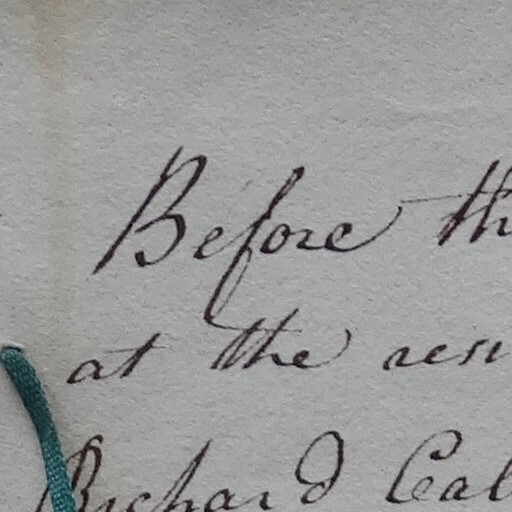 Before th
at the resi
Richard Cal